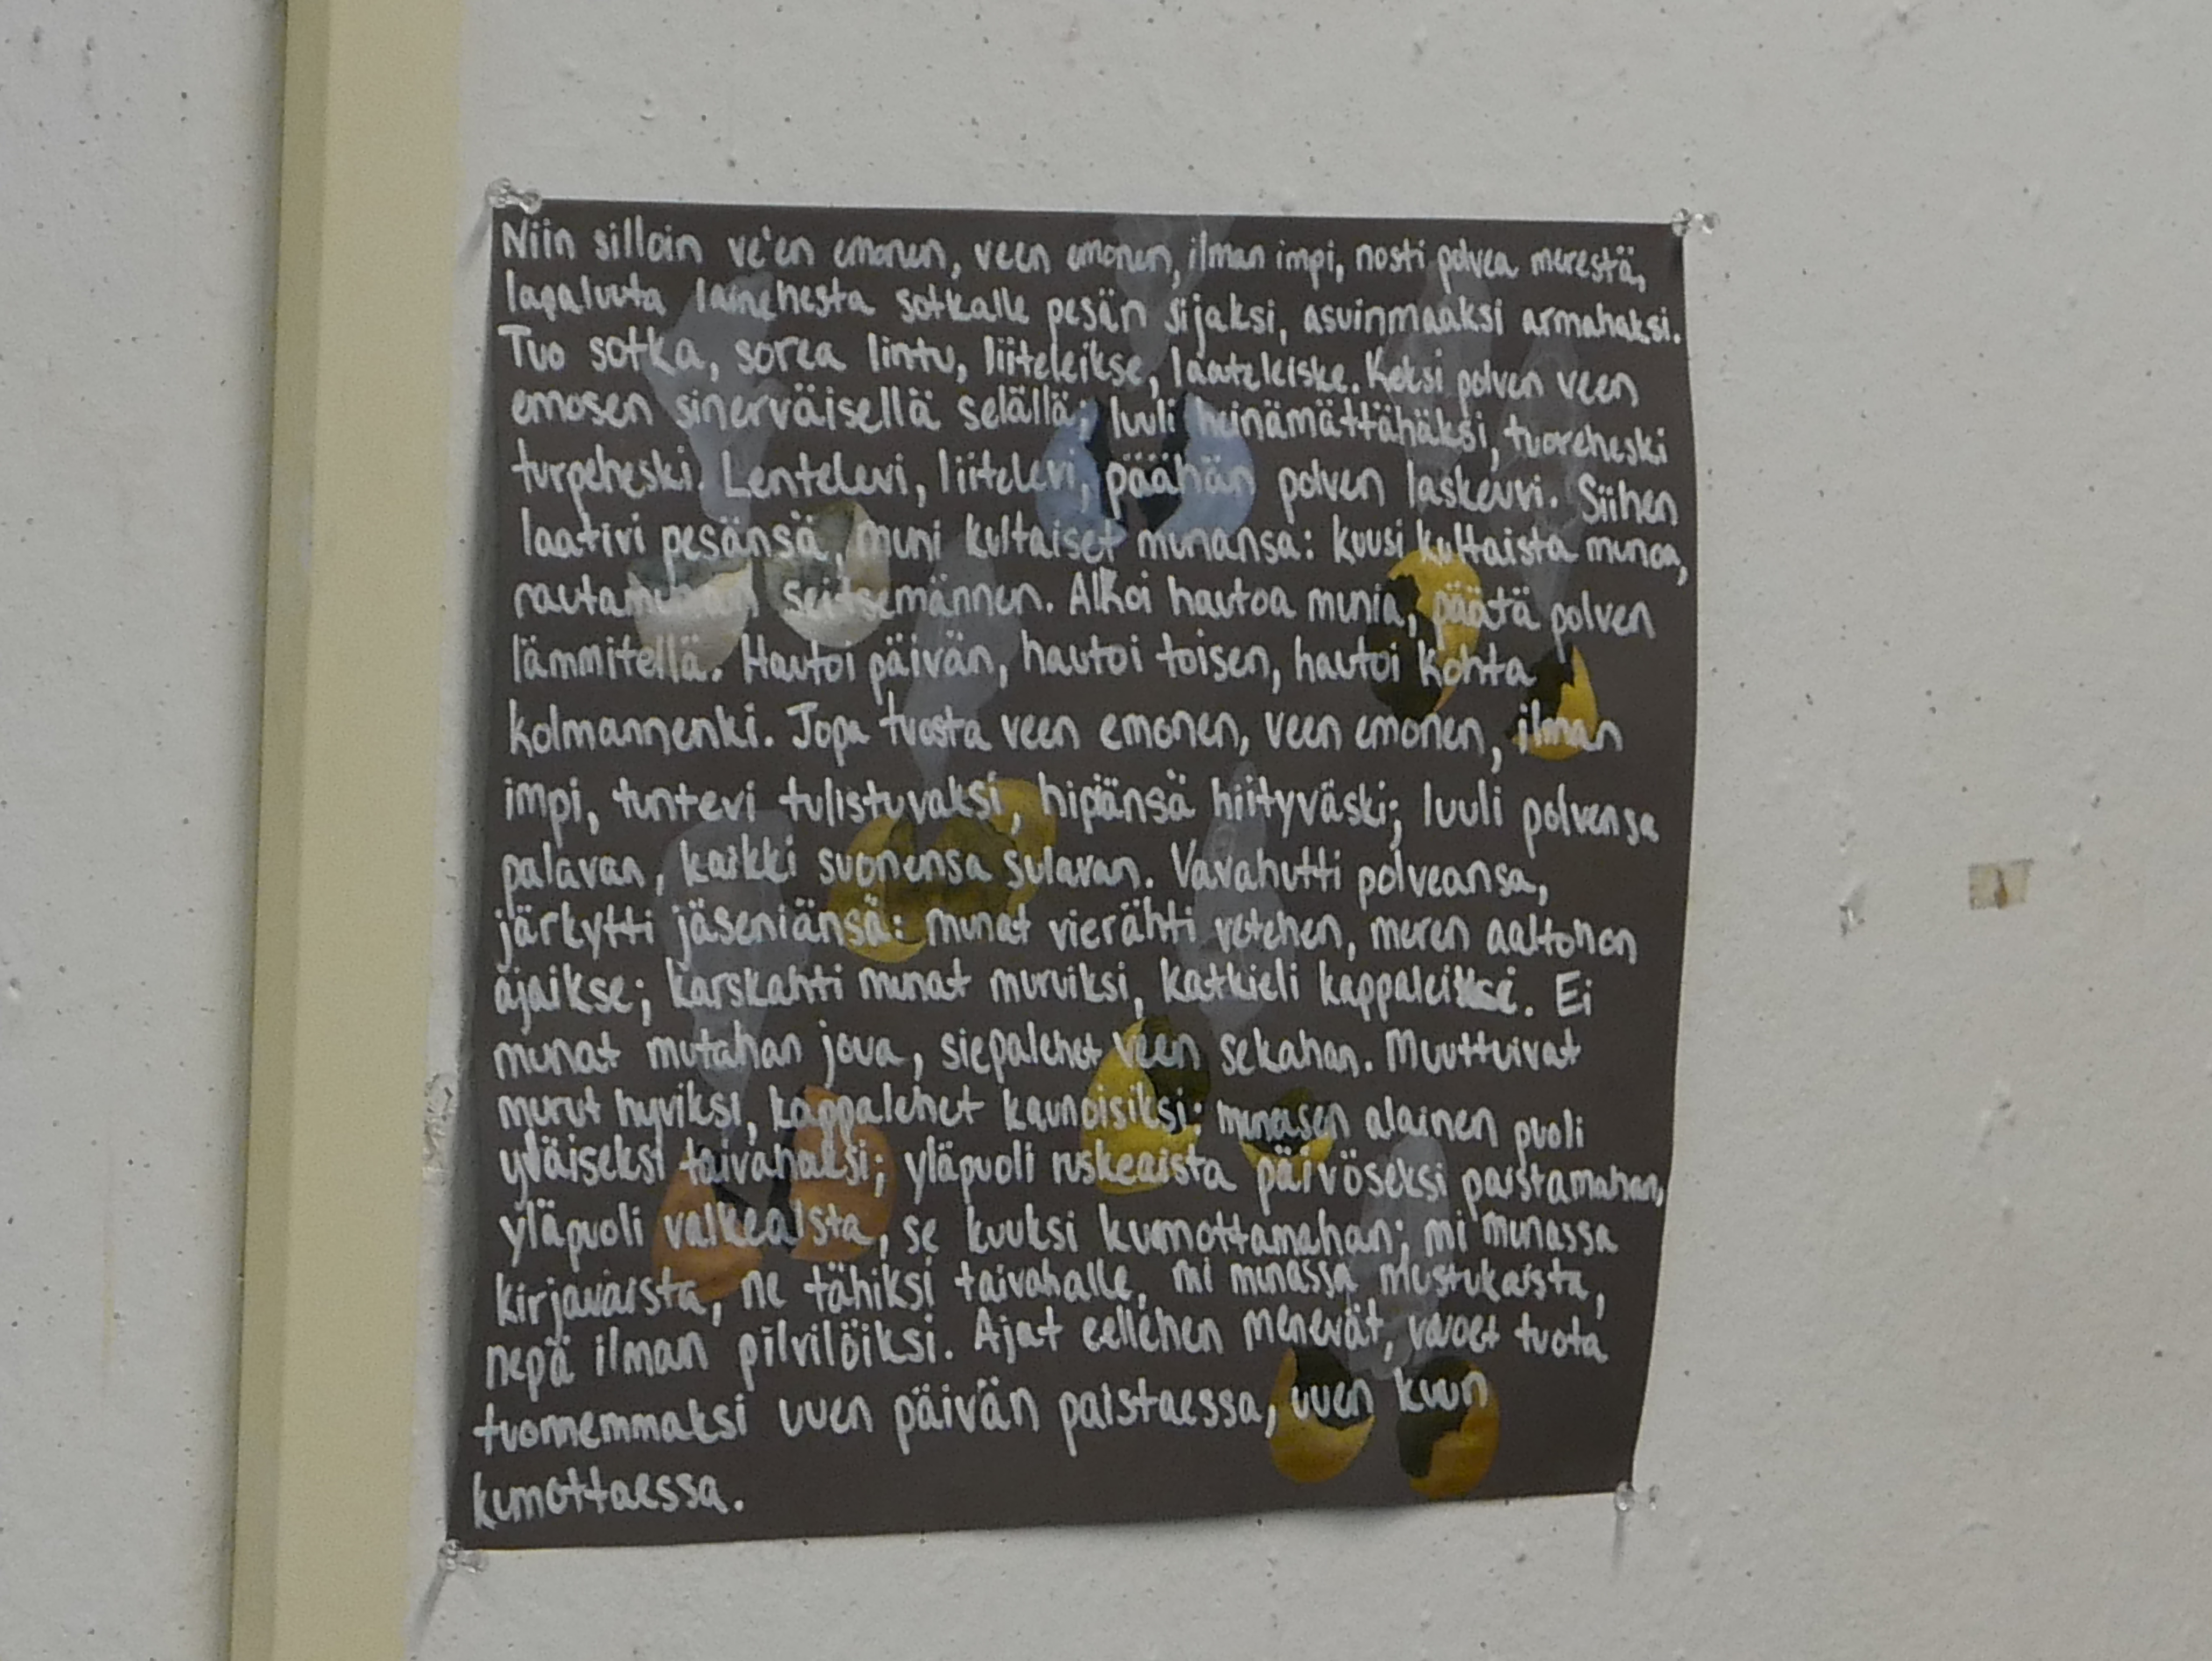 Niin silloin ve'en emonen, veen emonen, ilman impi, nosti polvea merestä,
lapaluuta lainehesta sotkalle pesän sijaksi, asuinmaaksi armahaksi.
Tuo sotka, sorea lintu, liiteleikse, laateleikse. Keksi polven veen
emosen sinerväisellä selällä; luuli heinämättähäksi, tuoreheski
turpeheski. Lentelevi, liitelevi, päähän polven laskeuvi. Siihen
laativi pesänsä, muni kultaiset munansa: kuusi kultaista munoa,
rautamunan seitsemännen. Alkoi hautoa munia, päätä polven
lämmitellä. Hautoi päivän, hautoi toisen, hautoi kohta
kolmannenki. Jopa tuosta veen emonen, veen emonen, ilman
impi, tuntevi tulistuvaksi, hipiänsä hiityväski; luuli polvensa
palavan, kaikki suonensa sulavan. Vavahutti polveansa,
järkytti jäseniänsä: munat vierähti vetehen, meren aaltohon
ajaikse; karskahti munat muruiksi, katkieli kappaleiksi. Ei
munat mutahan joua, siepalehet veen sekahan. Muuttuivat
murut hyviksi, kappalehet kaunoisiksi: munasen alainen puoli
yläiseksi taivahaksi; yläpuoli ruskeaista päivöseksi paistamahan,
yläpuoli valkeaista, se kuuksi kumottamahan; mi munassa
kirjavaista, ne tähiksi taivahalle, mi munassa mustukaista,
nepä ilman pilvilöiksi. Ajat eellehen menevät, vuoet tuota
tuonnemmaksi uuen päivän paistaessa, uuen kuun
kumottaessa.